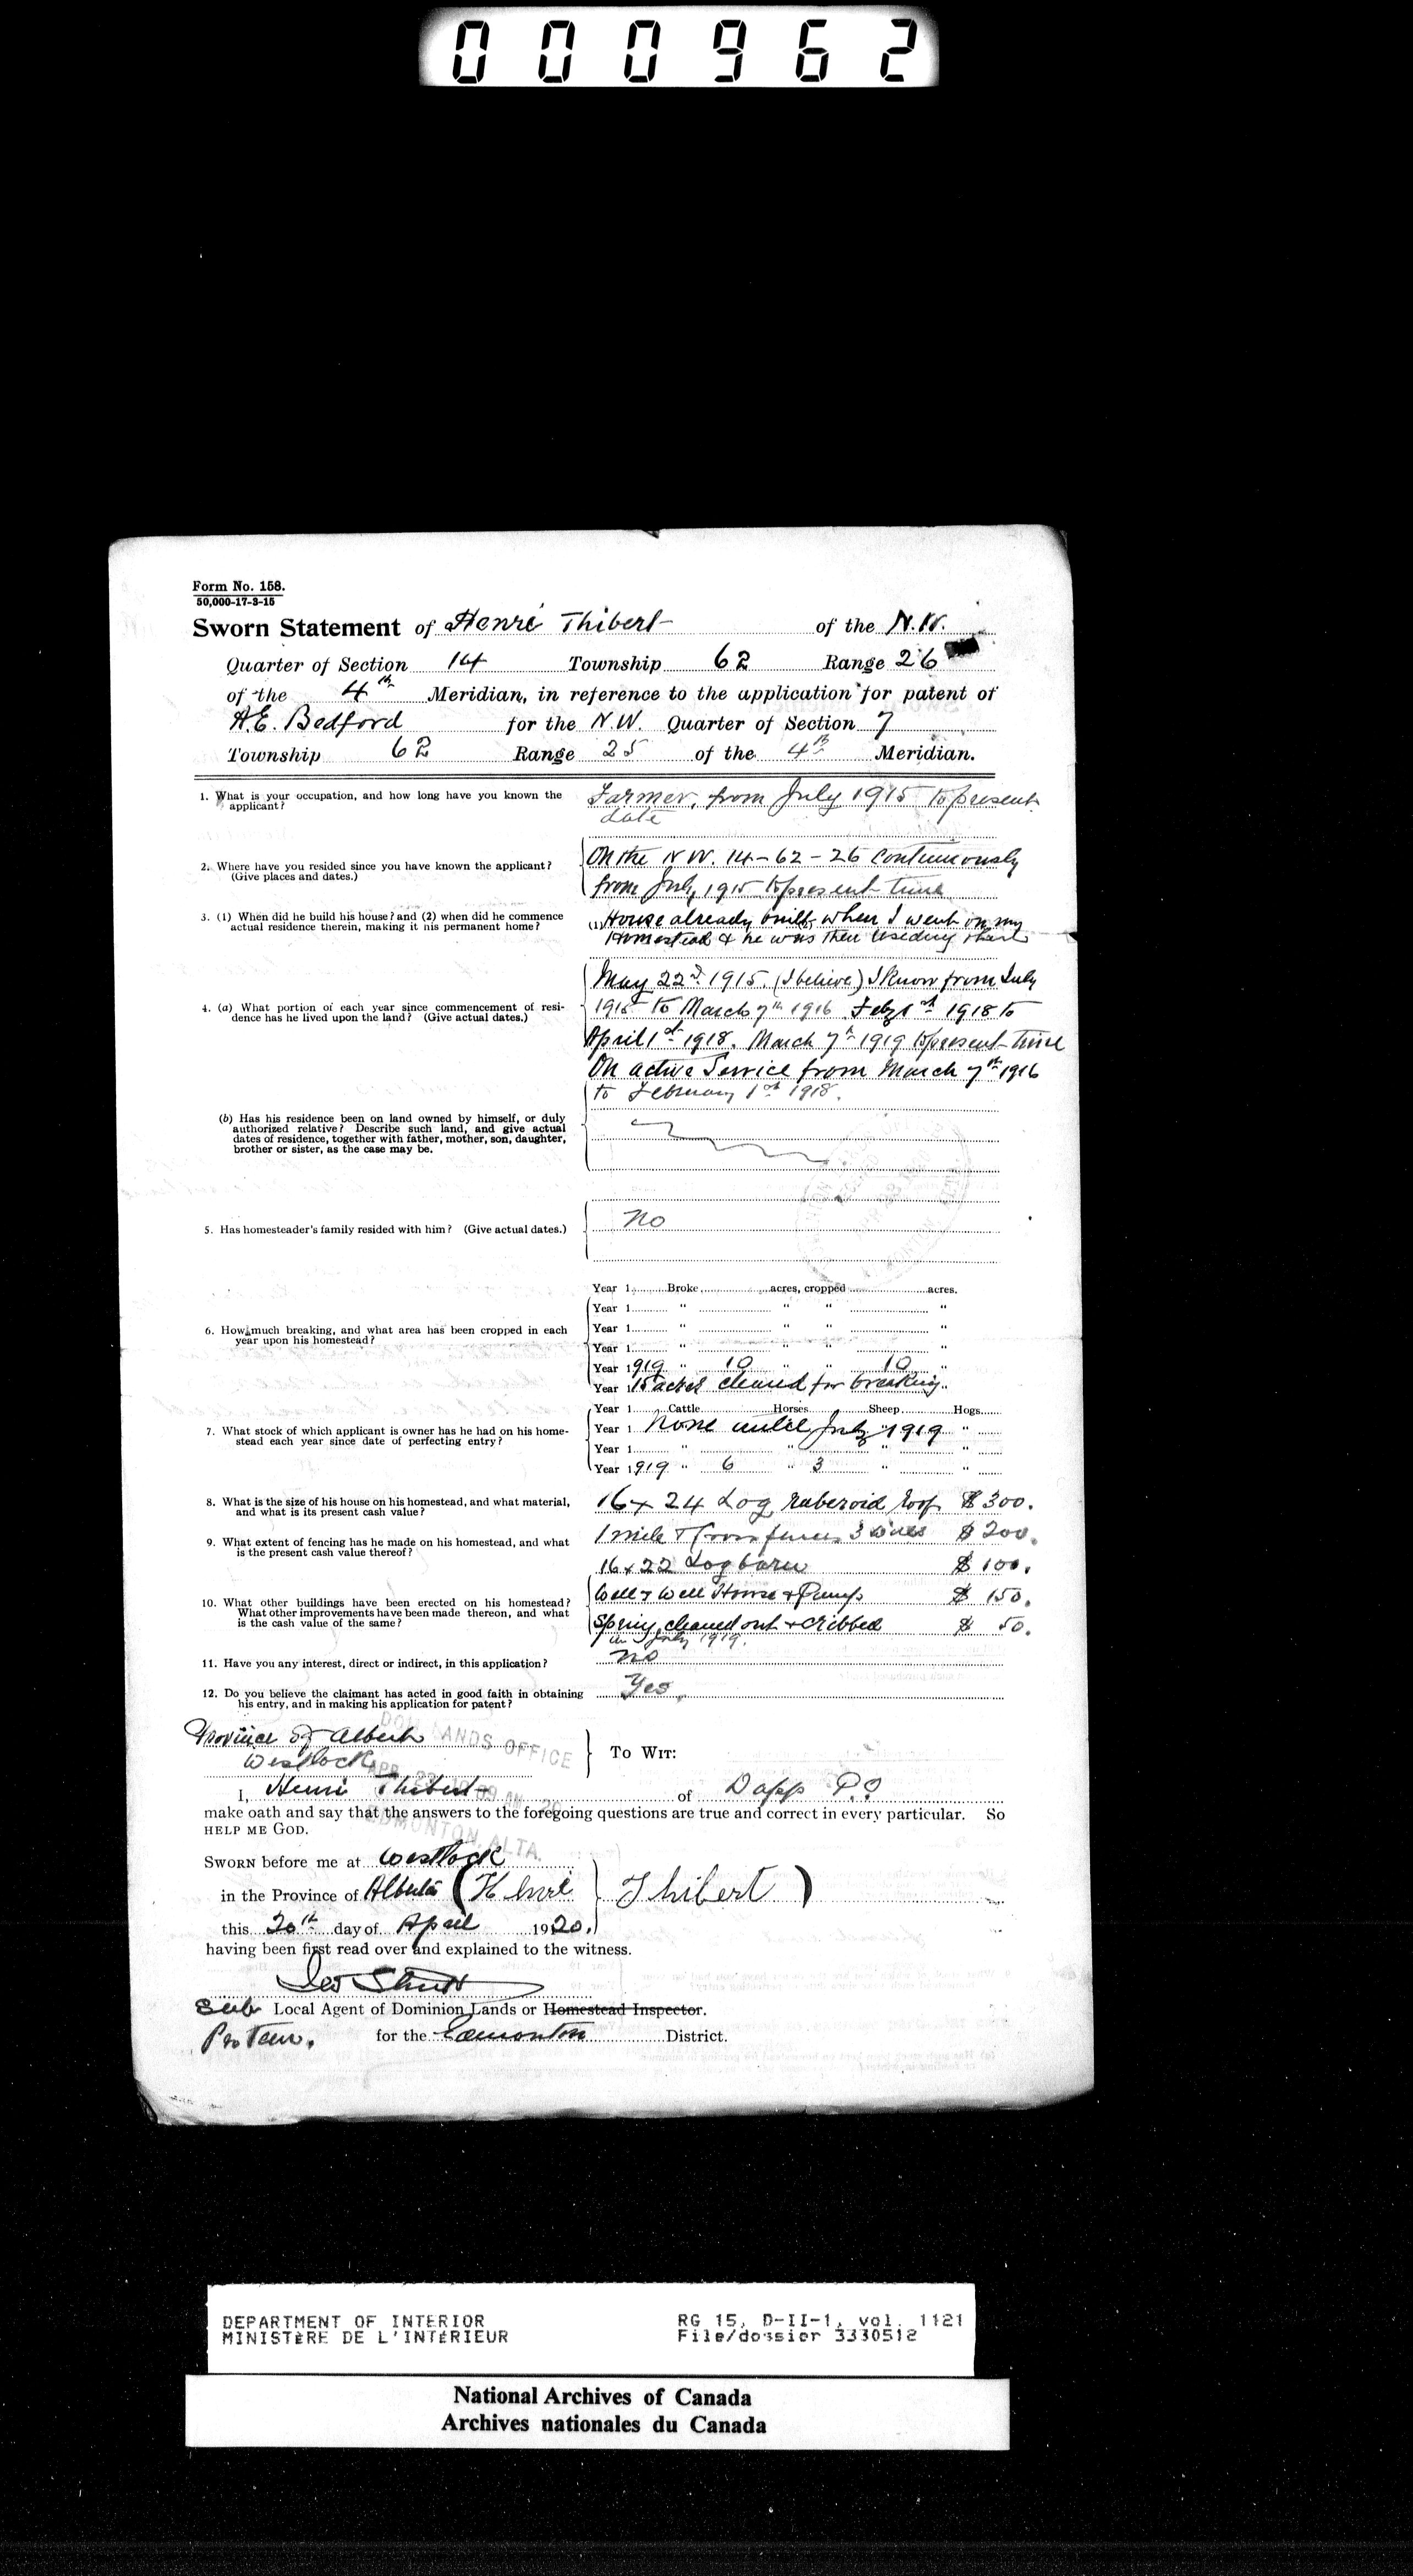 000962
Form No. 158.
50,000-17-3-15
Sworn Statement of Henri Thibert of the N.W.
Quarter of Section 14 Township 62 Range 26
of the 4th Meridian, in reference to the application for patent of
A.E. Bedford for the N.W. Quarter of Section 7
Township 62 Range 25 of the 4th Meridian.
1. What is your occupation, and how long have you known the applicant? Farmer, from July 1915 to present
date
2. Where have you resided since you have known the applicant? On the N W. 14-62-26 Continuously
(Give places and dates.) from July, 1915 to present time
3. (1) When did he build his house? and (2) when did he commence (1) House already built, when I went on my
actual residence therein, making it his permanent home? Homestead & he was then
May 22d 1915. (I believe) I know from July
4. (a) What portion of each year since commencement of resi- 1915 to March 7th 1916 Feby 1st 1918 to
dence has he lived upon the land? (Give actual dates.)
April 1st 1918. March 7th 1919 to present time
On active Service from March 7th 1916
to February 1st 1918.
(b) Has his residence been on land owned by himself, or duly
authorized relative? Describe such land, and give actual
dates of residence, together with father, mother, son, daughter,
brother or sister, as the case may be.
5. Has homesteader's family resided with him? (Give actual dates.) No
Year 1 Broke acres, cropped acres.
Year 1 " " " "
6. How much breaking, and what area has been cropped in each Year 1 " " " "
year upon his homestead?
Year 1 " " " "
Year 1919 " 10 " " 10 "
Year 1 15 acres cleared for breaking.
Year 1 Cattle Horses Sheep Hogs
7. What stock of which applicant is owner has he had on his home- Year 1 None until July 1919 "
stead each year since date of perfecting entry?
Year 1 " " " "
Year 1919 " 6 " 3 " "
8. What is the size of his house on his homestead, and what material, 16 x 24 Log ruberoid roof $300.
and what is its present cash value?
9. What extent of fencing has he made on his homestead, and what 1 mile & Cross fences 3 wires $200.
is the present cash value thereof?
16 x 22 Log barn $100.
10. What other buildings have been erected on his homestead? Well & Well House & Pump $150.
What other improvements have been made thereon, and what
is the cash value of the same? Spring cleaned out & cribbed $50.
in July 1919.
11. Have you any interest, direct or indirect, in this application? No
12. Do you believe the claimant has acted in good faith in obtaining Yes.
his entry, and in making his application for patent?
Province of Alberta
DOM LANDS OFFICE
Westlock To Wit:
I, Henri Thibert of Dapp P.O
make oath and say that the answers to the foregoing questions are true and correct in every particular. So
help me God.
EDMONTON, ALTA.
Sworn before me at Westlock
in the Province of Alberta (Henri Thibert)
this 20th day of April 1920.
having been first read over and explained to the witness.
Sub Local Agent of Dominion Lands or Homestead Inspector.
Pro Tem. for the Edmonton District.
DEPARTMENT OF INTERIOR RG 15, D-II-1, vol. 1121
MINISTÈRE DE L'INTÉRIEUR File/dossier 3330512
National Archives of Canada
Archives nationales du Canada